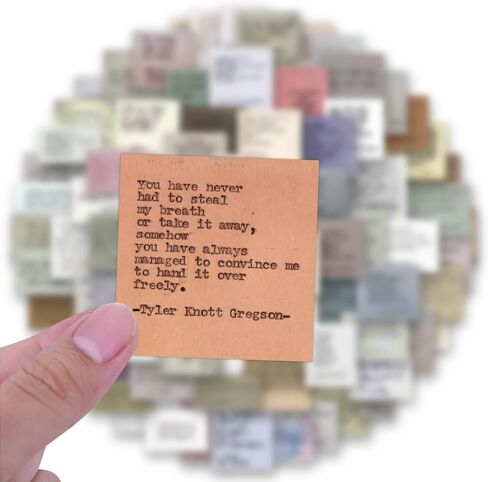 You have never
had to steal
my breath
or take it away,
somehow
you have always
managed to convince me
to hand it over
freely.
—Tyler Knott Gregson—